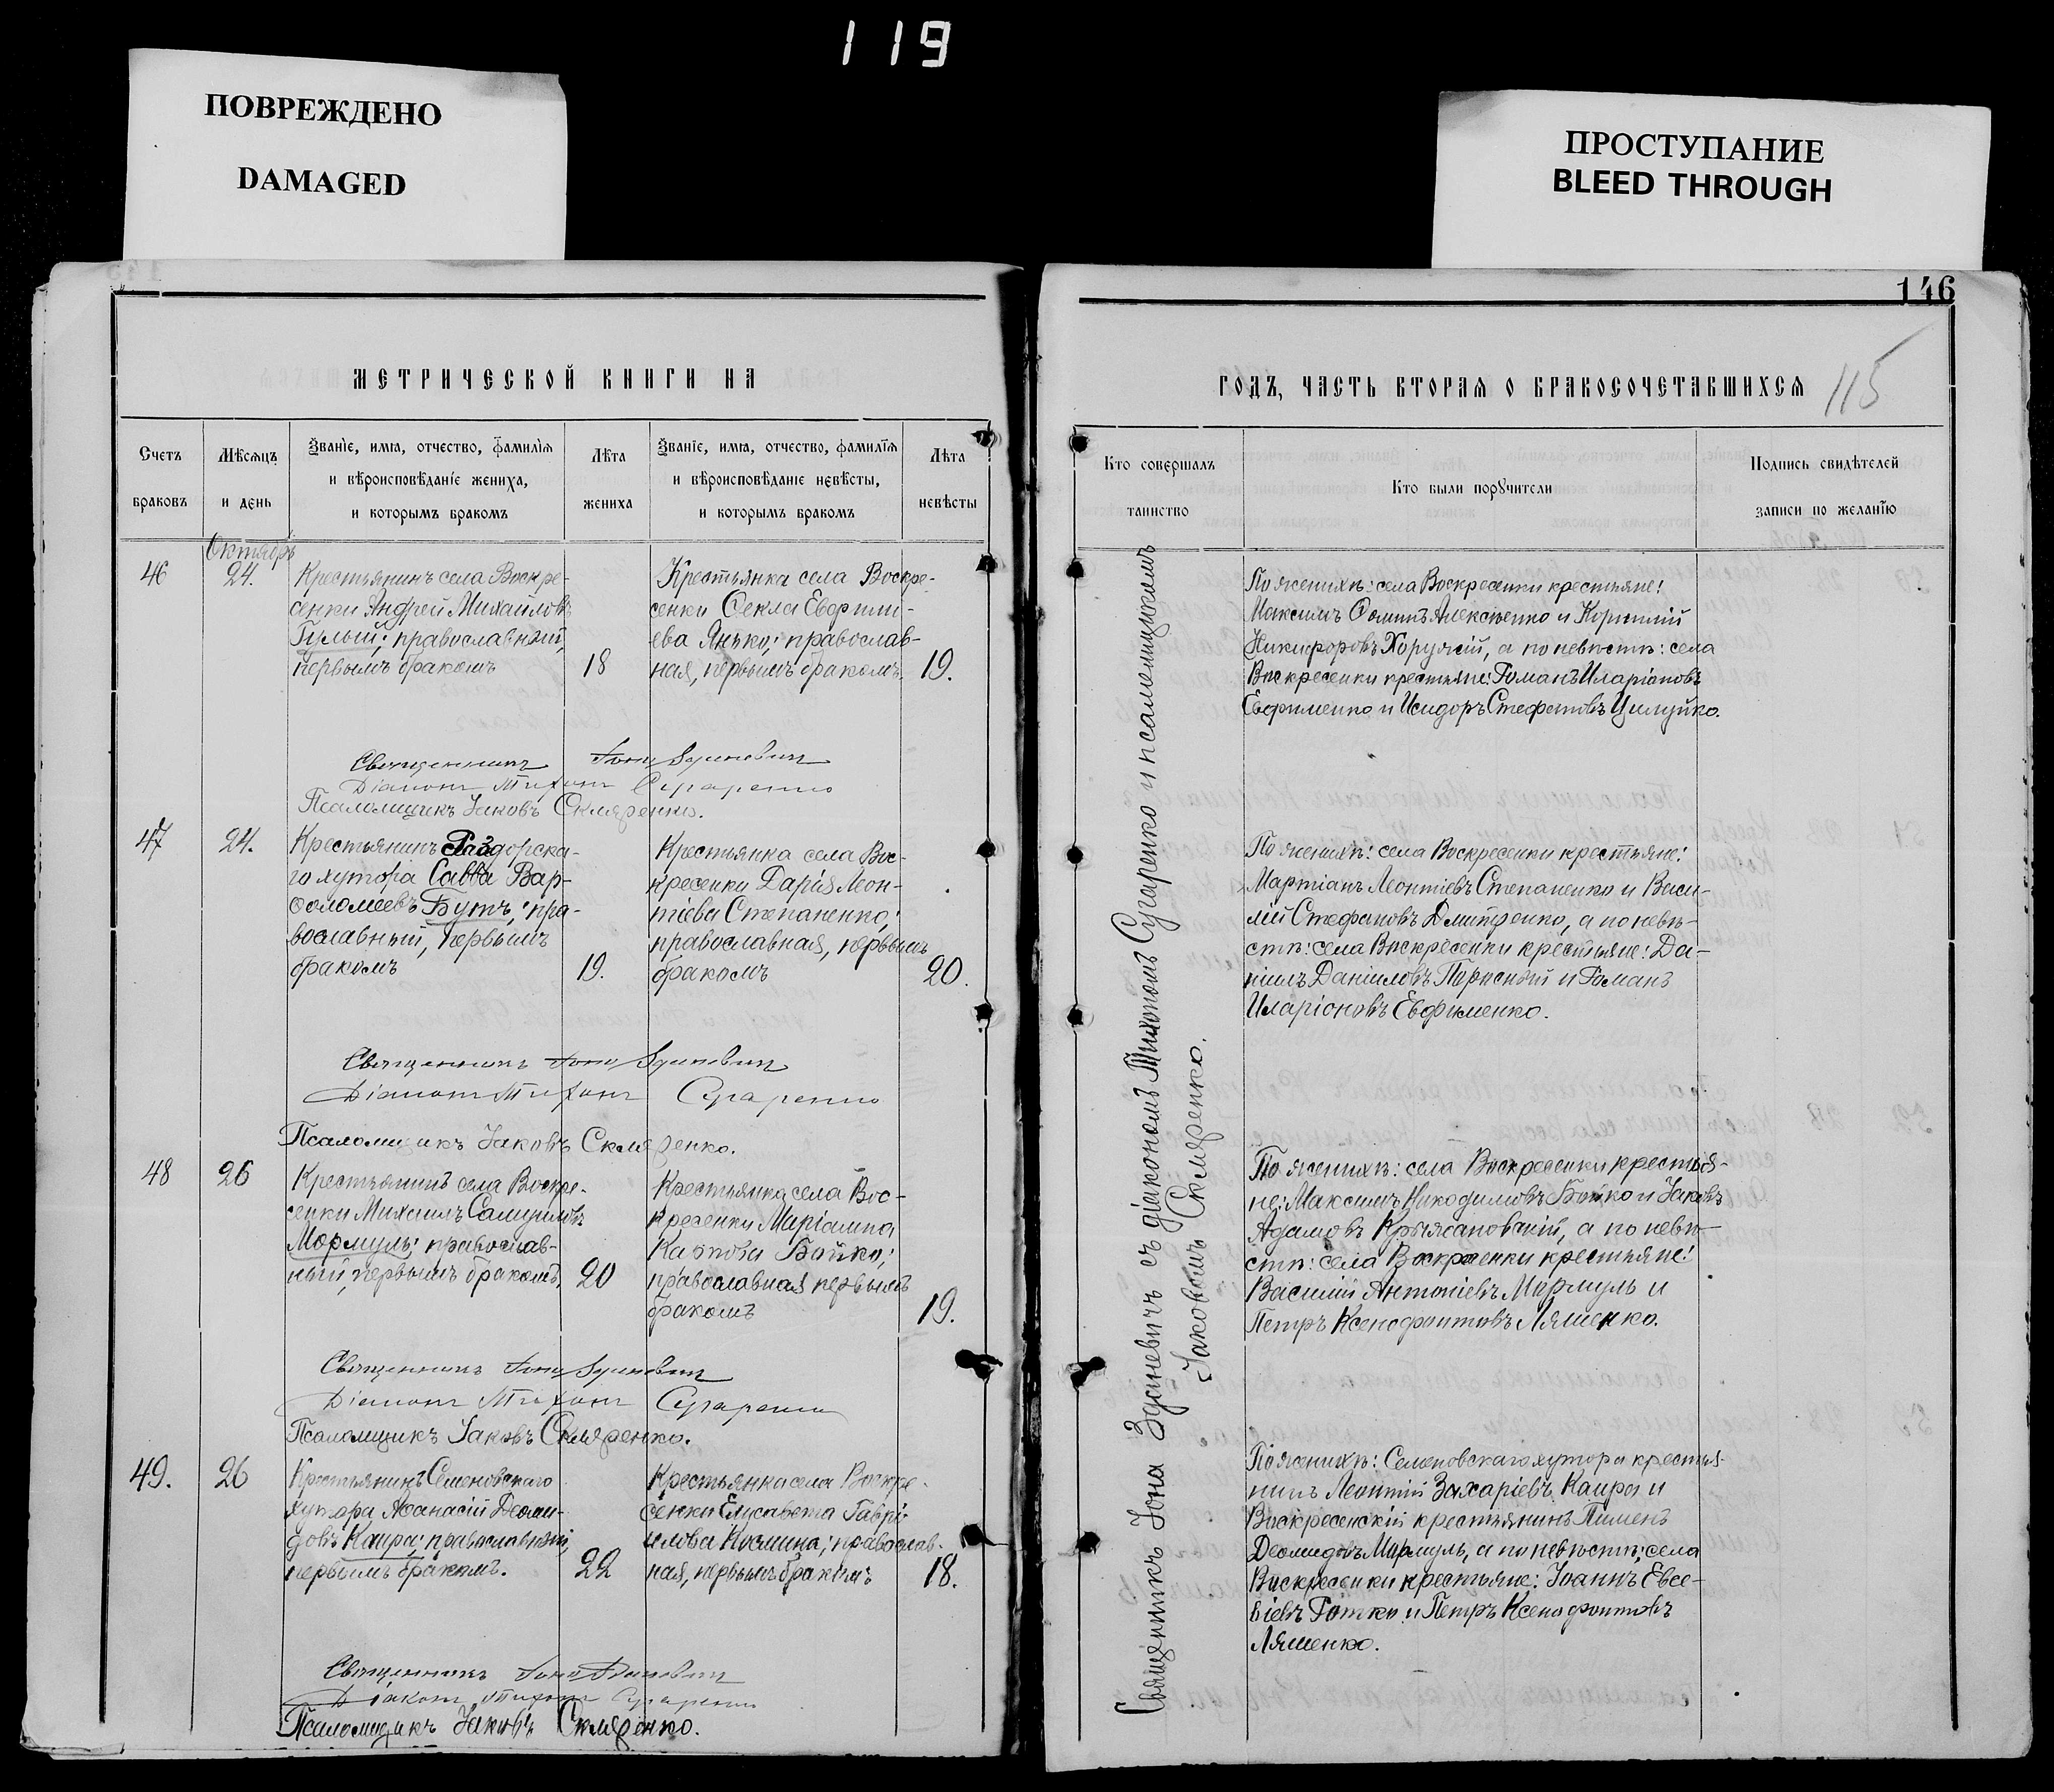 119
ПОВРЕЖДЕНО
DAMAGED
ПРОСТУПАНИЕ
BLEED THROUGH
МЕТРИЧЕСКОЙ КНИГИ НА
Счетъ
браковъ
Мѣсяцъ
и день
Званіе, имя, отчество, фамилія
и вѣроисповѣданіе жениха,
и которымъ бракомъ
Лѣта
жениха
Званіе, имя, отчество, фамилія
и вѣроисповѣданіе невѣсты,
и которымъ бракомъ
Лѣта
невѣсты
Октябрь
46
24.
Крестьянинъ села Воскре-
сенки Андрей Михайловъ
Гулый; православный,
первымъ бракомъ
18
Крестьянка села Воскре-
сенки Ѳекла Евфими-
ева Янько; православ-
ная, первымъ бракомъ.
19.
Священникъ Іона Зданевичъ
Діаконъ Тихонъ Сугаренко
Псаломщикъ Іаковъ Скляренко.
47
24.
Крестьянинъ Раздорска-
го хутора Савва Вар-
ѳоломеевъ Бутъ; пра-
вославный, первымъ
бракомъ
19.
Крестьянка села Вос-
кресенки Дарія Леон-
тіева Степаненко;
православная, первымъ
бракомъ
20.
Священникъ Іона Зданевичъ
Діаконъ Тихонъ Сугаренко
Псаломщикъ Іаковъ Скляренко.
48
26
Крестьянинъ села Воскре-
сенки Михаилъ Самуиловъ
Мормуль; православ-
ный, первымъ бракомъ,
20
Крестьянка села Вос-
кресенки Маріамна
Карпова Бойко;
православная первымъ
бракомъ
19.
Священникъ Іона Зданевичъ
Діаконъ Тихонъ Сугаренко
Псаломщикъ Іаковъ Скляренко.
49.
26
Крестьянинъ Семеновскаго
хутора Аѳанасій Деоми-
довъ Каира; православный,
первымъ бракомъ.
22
Крестьянка села Воскре-
сенки Елисавета Гаврі-
илова Космина; православ-
ная, первымъ бракомъ
18.
Священникъ Іона Зданевичъ
Діаконъ Тихонъ Сугаренко
Псаломщикъ Іаковъ Скляренко.
146
ГОДЪ, ЧАСТЬ ВТОРАЯ О БРАКОСОЧЕТАВШИХСЯ
115
Кто совершалъ
таинство
Кто были поручители
Подпись свидѣтелей
записи по желанію
Священникъ Іона Зданевичъ съ діакономъ Тихономъ Сугаренко и псаломщикомъ
Іаковомъ Скляренко.
По женихѣ: села Воскресенки крестьяне:
Максимъ Ѳоминъ Алексѣенко и Корнилій
Никифоровъ Хоружій, а по невѣстѣ: села
Воскресенки крестьяне: Романъ Иларіоновъ
Евфименко и Исидоръ Стефановъ Цилуйко.
По женихѣ: села Воскресенки крестьяне:
Мартіанъ Леонтіевъ Степаненко и Васи-
лій Стефановъ Дмитренко, а по невѣ-
стѣ: села Воскресенки крестьяне: Да-
ніилъ Даніиловъ и Романъ
Иларіоновъ Евфименко.
По женихѣ: села Воскресенки крестья-
не: Максимъ Никодимовъ Бойко и Іаковъ
Адамовъ Крыжановскій, а по невѣ-
стѣ: села Воскресенки крестьяне:
Василій Антоніевъ Мормуль и
Петръ Ксенофонтовъ Ляшенко.
По женихѣ: Семеновскаго хутора крестья-
нинъ Леонтій Захаріевъ Каира и
Воскресенскій крестьянинъ Пименъ
Деомидовъ Мормуль, а по невѣстѣ: села
Воскресенки крестьяне: Іоаннъ Евсе-
віевъ и Петръ Ксенофонтовъ
Ляшенко.